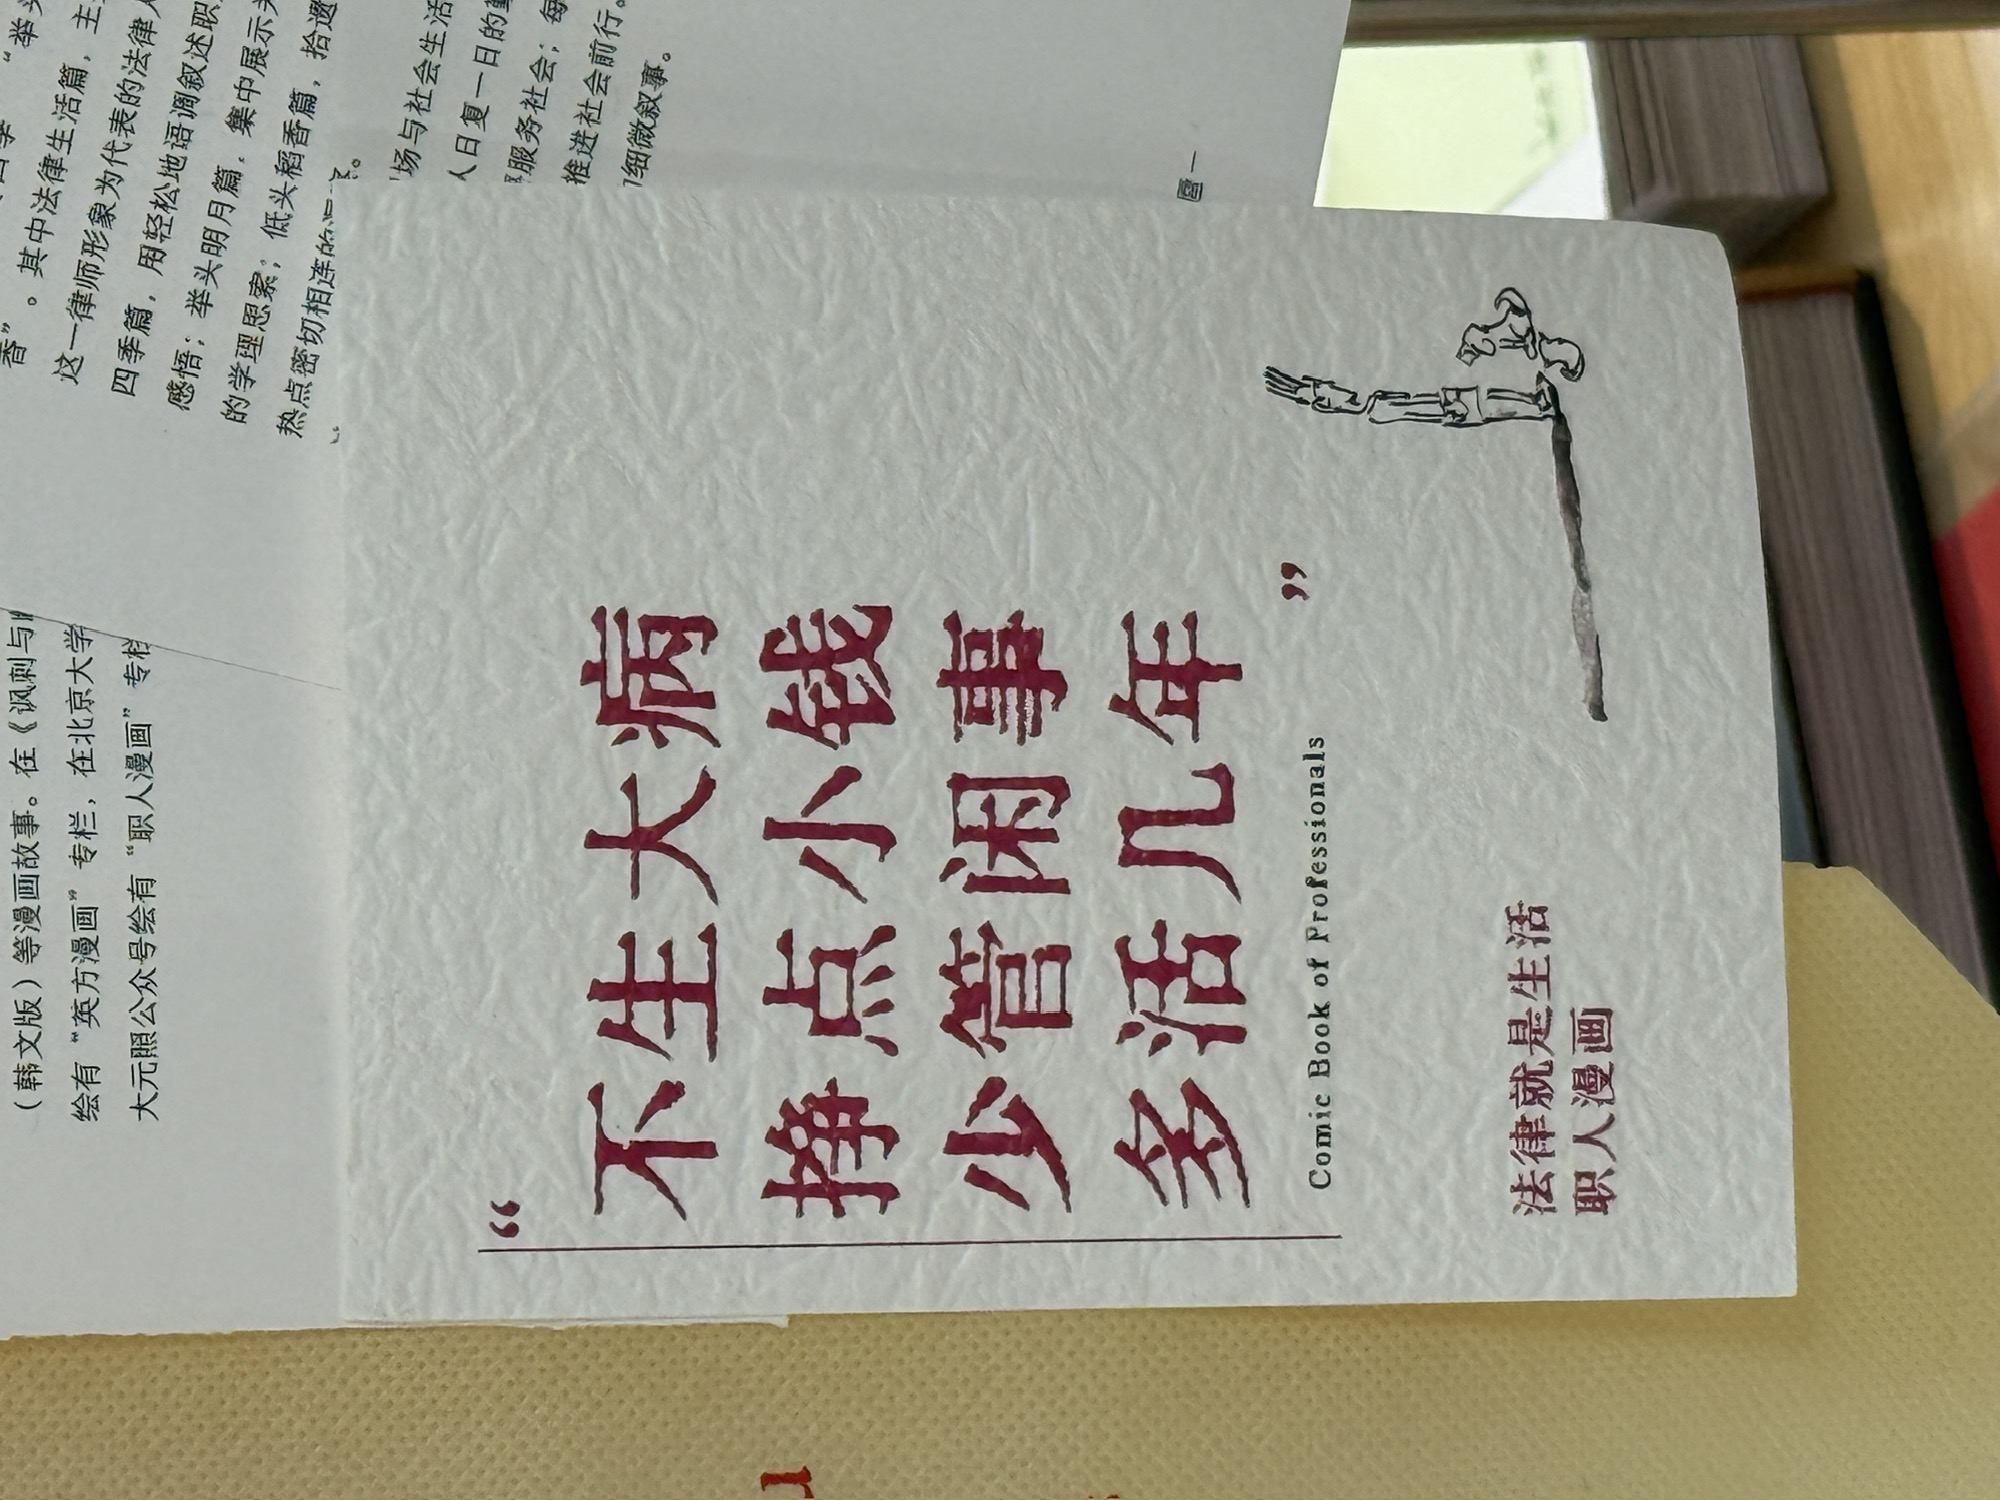 “
不生大病
挣点小钱
少管闲事
多活几年
”
Comic Book of Professionals
法律就是生活
职人漫画
香”。其中法律生活篇，主
这一律师形象为代表的法律人
四季篇，用轻松地语调叙述职
感悟；举头明月篇，集中展示
的学理思索；低头稻香篇，拾遗
热点密切相连的
场与社会生活
人日复一日的
服务社会；每
推进社会前行。
细微叙事。
（韩文版）等漫画故事。在《讽刺与
绘有“英方漫画”专栏，在北京大学
大元照公众号绘有“职人漫画”专栏